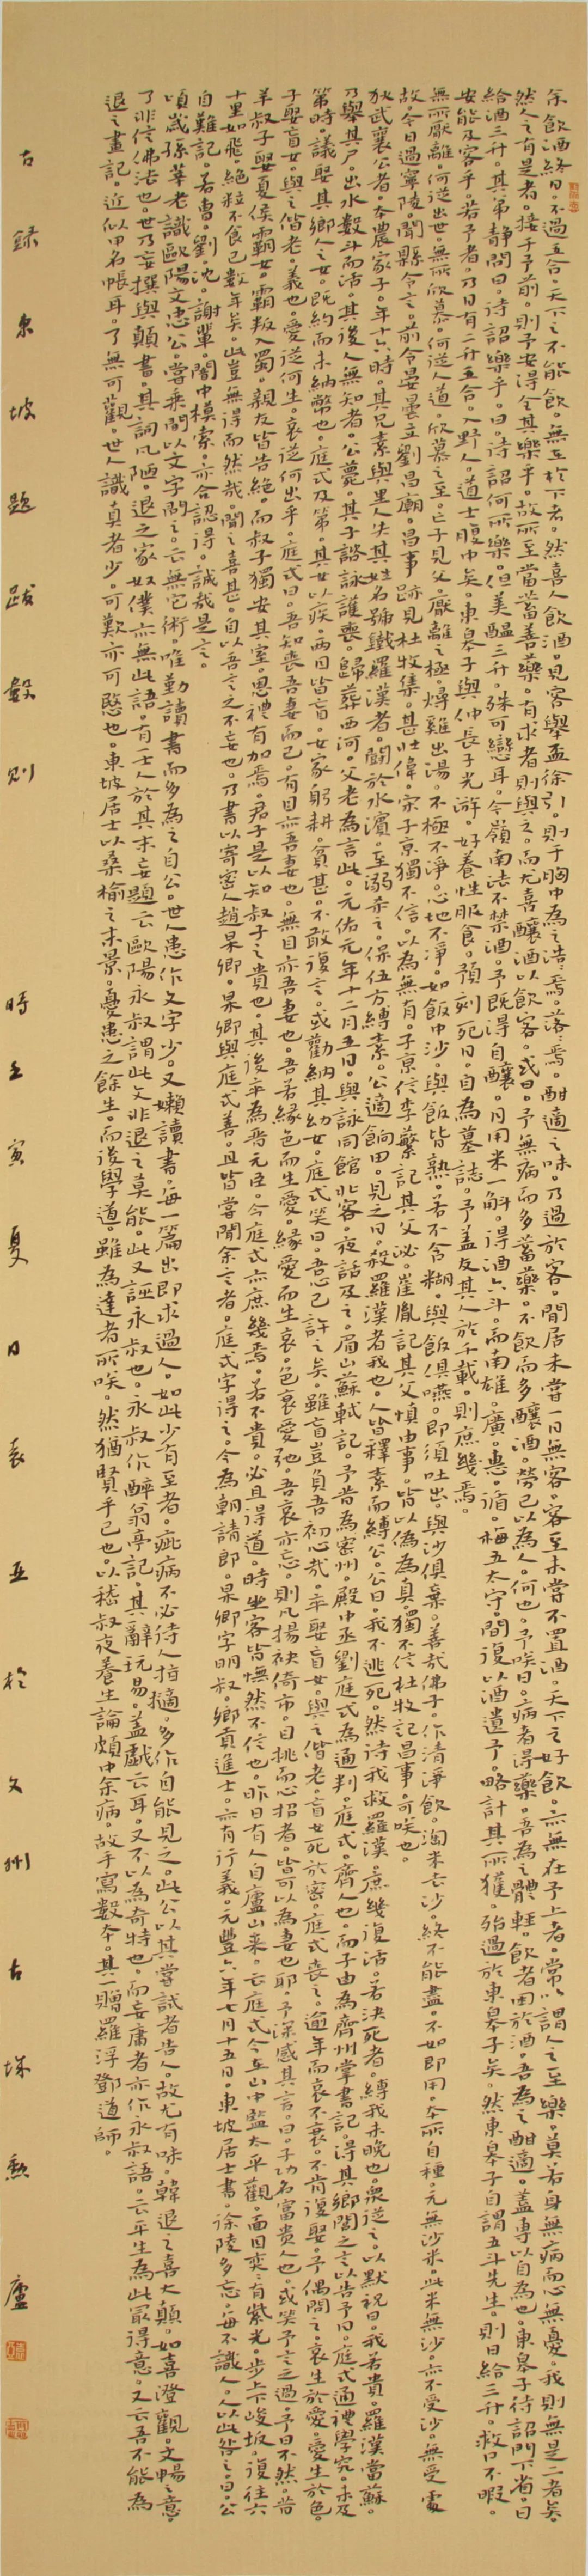 余飲酒終日。不過五合。天下之不能飲。無在於下者。然喜人飲酒。見客舉盃徐引。則于胸中為之浩焉。落焉。酣適之味。乃過於客。閒居未嘗一日無客。客至未嘗不置酒。天下之好飲。亦無在予上者。常以謂人之至樂。莫若身無病而心無憂。我則無是二者矣。
然人之有是者。接于予前。則予安得全其樂乎。故所至當蓄善藥。有求者則與之。而尤喜釀酒以飲客。或曰。予無病而多蓄藥。不飲而多釀酒。勞己以為人。何也。予咲曰。病者得藥。吾為之體輕。飲者困於酒。吾為之酣適。蓋專以自為也。東皋子待詔門下省。日
給酒三升。其弟靜問曰。待詔樂乎。曰。待詔何所樂。但美醞三升。殊可戀耳。今嶺南法不禁酒。予既得自釀。月用米一斛。得酒六斗。而南雄。廣。惠。循。梅五太守。間復以酒遺予。略計其所獲。殆過於東皋子矣。然東皋子自謂五斗先生。則日給三升。救口不暇。
安能及客乎。若予者。乃日有二升五合。入野人。道士腹中矣。東皋子與仲長子光游。好養性服食。預刻死日。自為墓誌。予蓋友其人於千載。則庶幾焉。
無所厭離。何從出世。無所欣慕。何從入道。欣慕之至。亡子見父。厭離之極。燖雞出湯。不極不淨。心地不淨。如飯中沙。與飯皆熟。若不含糊。與飯俱嚥。即須吐出。與沙俱棄。善哉佛子。作清淨飲。淘米去沙。終不能盡。不如即用。本所自種。元無沙米。此米無沙。亦不受沙。無受處
故。今日過寧陵。聞縣令言。前令晏曇立劉昌廟。昌事跡見杜牧集。甚壯偉。宋子京獨不信。以為無有。子京信李蘩記其父泌。崔胤記其父慎由事。皆以偽為真。獨不信杜牧記昌事。可咲也。
狄武襄公者。本農家子。年十六時。其兄素與里人失其姓名號鐵羅漢者。鬪於水濱。至溺殺之。保伍方縛素。公適餉田。見之曰。殺羅漢者我也。人皆釋素而縛公。公曰。我不逃死。然待我救羅漢。庶幾復活。若決死者。縛我未晚也。眾從之。以默祝曰。我若貴。羅漢當蘇。
乃舉其尸。出水數斗而活。其後人無知者。公薨。其子諮詠護喪。歸葬西河。父老為言此。元佑元年十二月五日。與詠同館北客。夜話及之。眉山蘇軾記。予昔為密州。殿中丞劉庭式為通判。庭式。齊人也。而子由為齊州掌書記。得其鄉閭之言以告予曰。庭式通禮學究。未及
第時。議娶其鄉人之女。既約而未納幣也。庭式及第。其女以疾。兩目皆盲。女家躬耕。貧甚。不敢復言。或勸納其幼女。庭式笑曰。吾心已許之矣。雖盲豈負吾初心哉。卒娶盲女。與之偕老。盲女死於密。庭式喪之。逾年而哀不衰。不肯復娶。予偶問之。哀生於愛。愛生於色。
子娶盲女。與之偕老。義也。愛從何生。哀從何出乎。庭式曰。吾知喪吾妻而已。有目亦吾妻也。無目亦吾妻也。吾若緣色而生愛。緣愛而生哀。色衰愛弛。吾哀亦忘。則凡揚袂倚市。目挑而心招者。皆可以為妻也耶。予深感其言。曰。子功名富貴人也。或笑予言之過。予曰不然。昔
羊叔子娶夏侯霸女。霸叛入蜀。親友皆告絕。而叔子獨安其室。恩禮有加焉。君子是以知叔子之貴也。其後卒為晉元臣。今庭式亦庶幾焉。若不貴。必且得道。時坐客皆憮然不信也。昨日有人自廬山來。云庭式今在山中監太平觀。面目奕。有紫光。步上下峻坂。復往六
十里如飛。絕粒不食已數年矣。此豈無得而然哉。聞之喜甚。自以吾言之不妄也。乃書以寄密人趙杲卿。杲卿與庭式善。且皆嘗聞余言者。庭式字得之。今為朝請郎。杲卿字明叔。鄉貢進士。亦有行義。元豐六年七月十五日。東坡居士書。徐陵多忘。每不識人。人以此咎之。曰。公
自難記。若曹。劉。沈。謝輩。闇中模索。亦合認得。誠哉是言。
頃歲孫莘老識歐陽文忠公。嘗乘間以文字問之。云無它術。唯勤讀書而多為之自公。世人患作文字少。又嬾讀書。每一篇出即求過人。如此少有至者。疵病不必待人指擿。多作自能見之。此公以其嘗試者告人。故尤有味。韓退之喜大顛。如喜澄觀。文暢之意。
了非信佛法也。世乃妄撰與顛書。其詞凡陋。退之家奴僕亦無此語。有士人於其末妄題云歐陽永叔謂此文非退之莫能。此又誣永叔也。永叔作醉翁亭記。其辭玩易。蓋戲云耳。又不以為奇特也。而妄庸者亦作永叔語。云平生為此最得意。又云吾不能為
退之畫記。近似甲名帳耳。了無可觀。世人識真者少。可歎亦可愍也。東坡居士以桑榆之末景。憂患之餘生。而後學道。雖為達者所咲。然猶賢乎已也。以嵇叔夜養生論頗中余病。故手寫數本。其一贈羅浮鄧道師。
古錄東坡題跋數則 時壬寅夏日袁亞於文州古珠勲廬